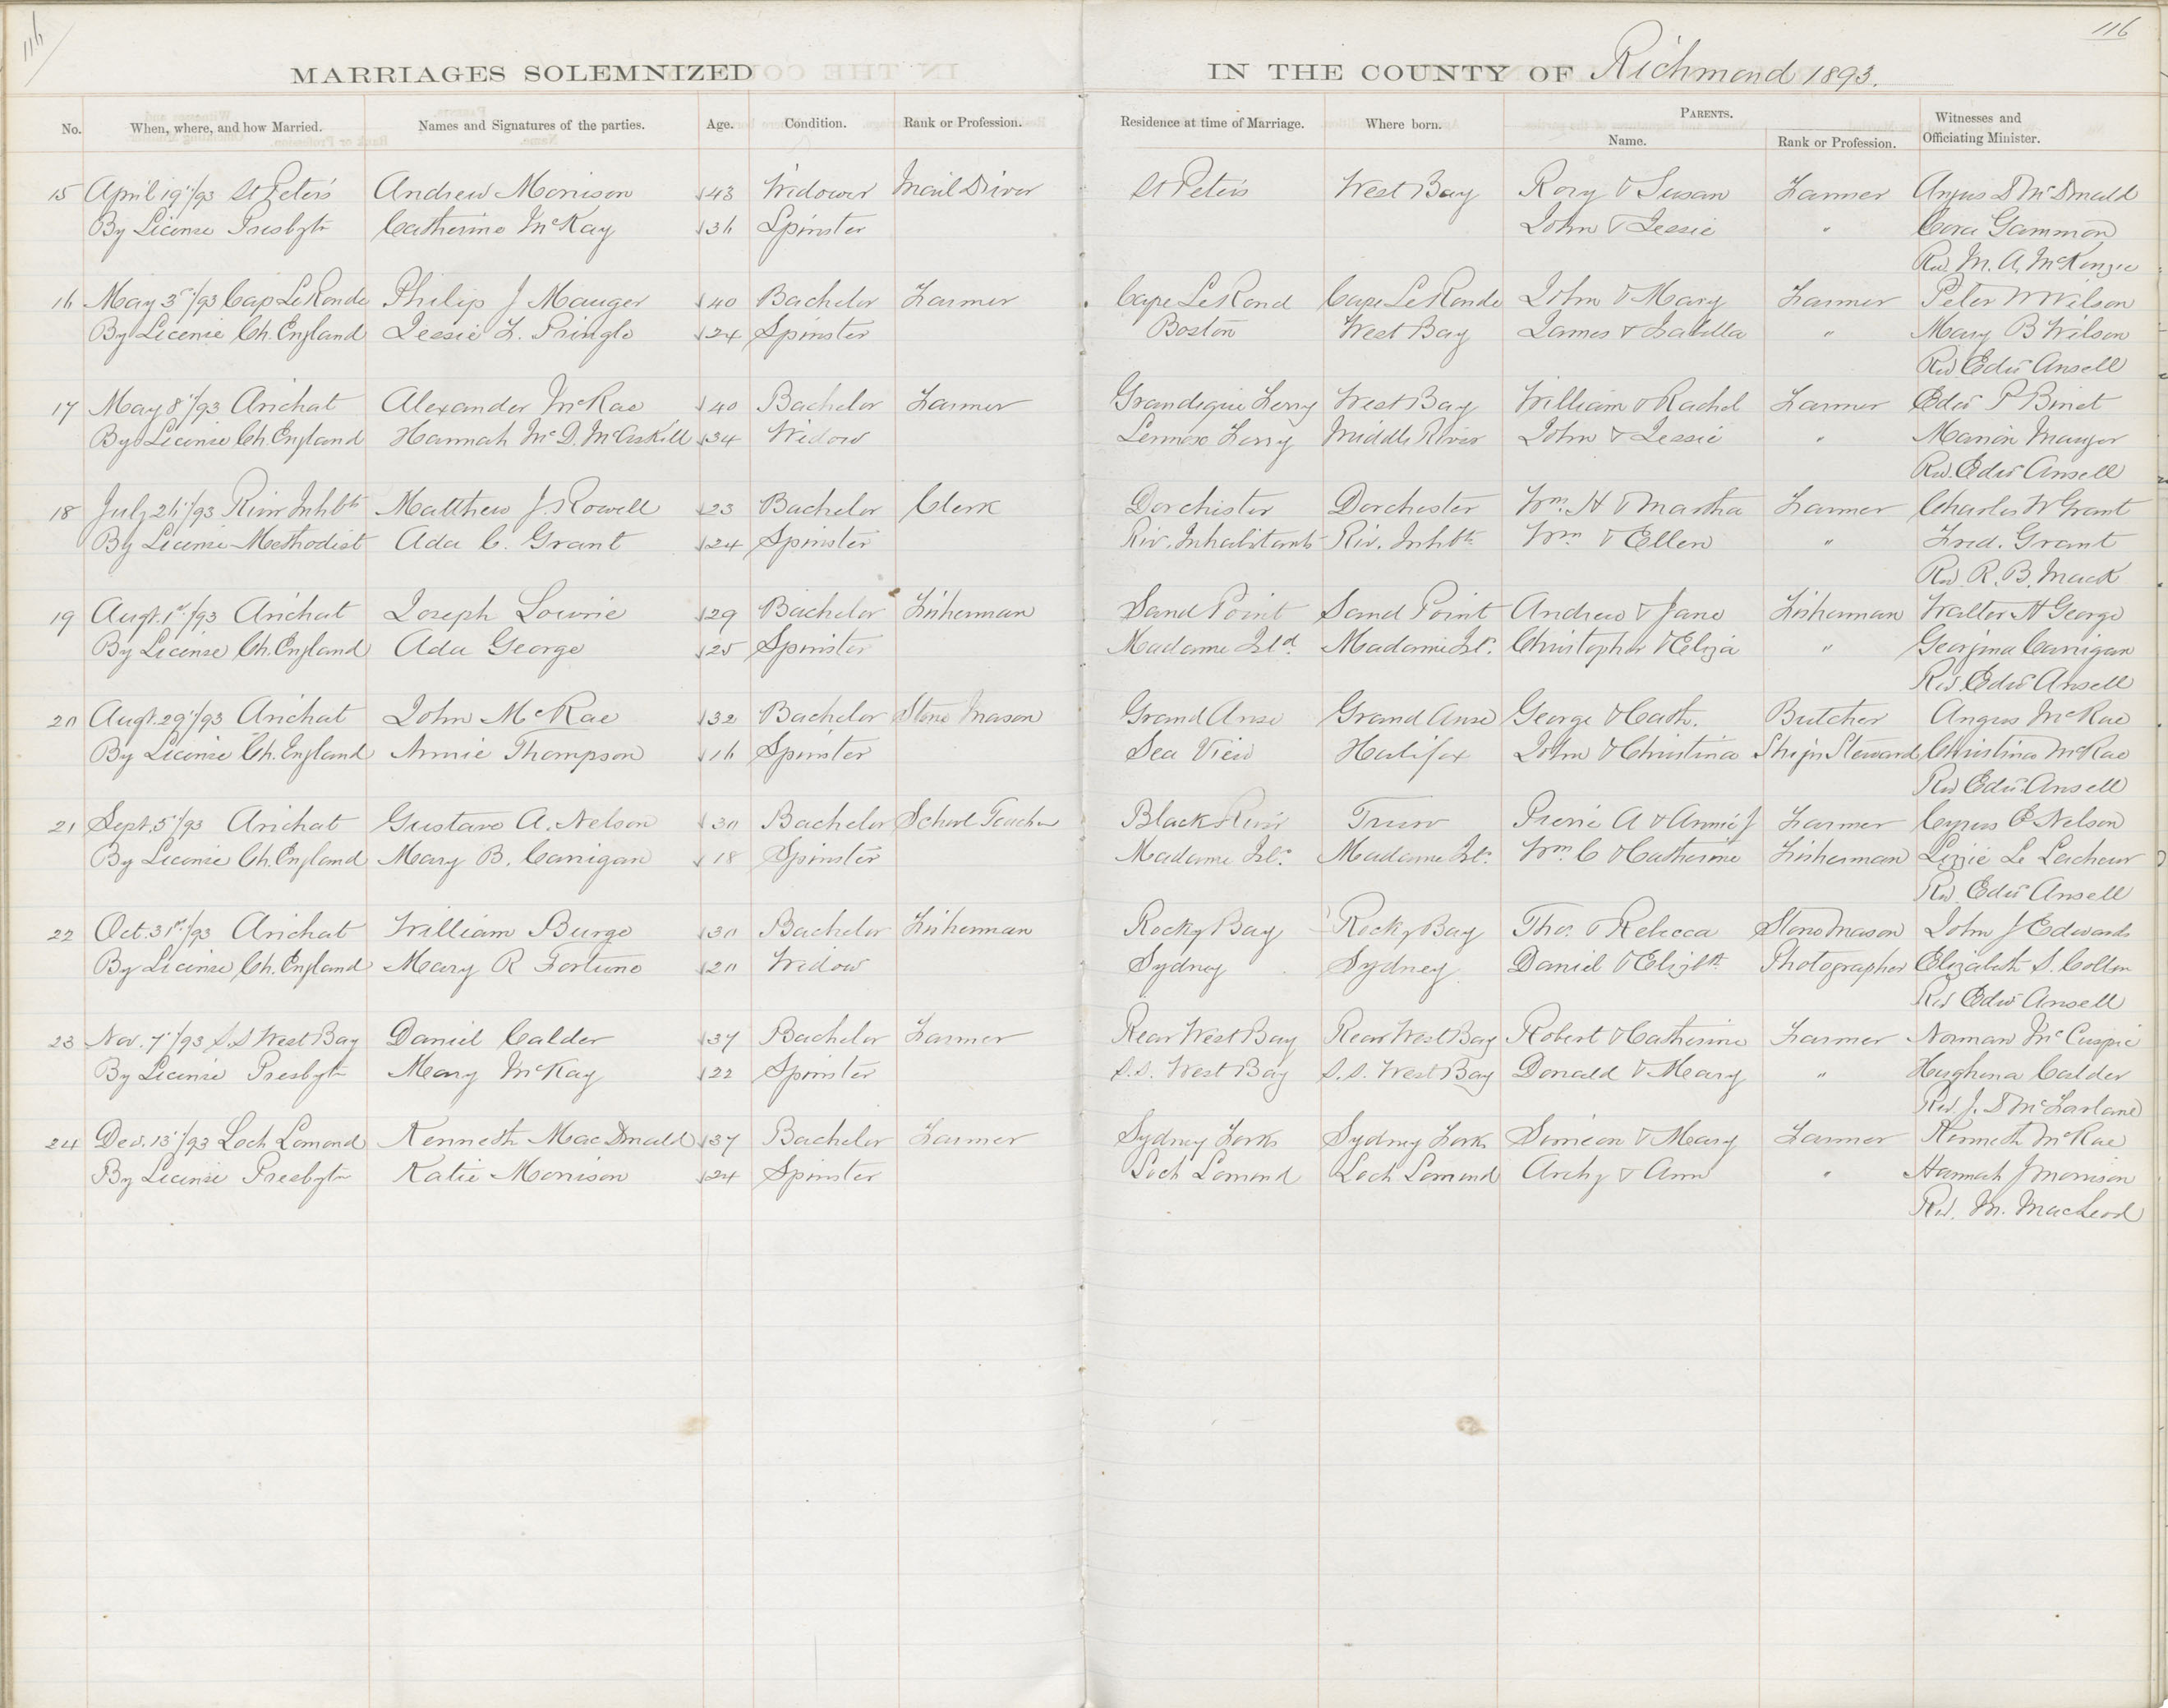 116
116
MARRIAGES SOLEMNIZED IN THE COUNTY OF Richmond 1893.
No. When, where, and how Married. Names and Signatures of the parties. Age. Condition. Rank or Profession. Residence at time of Marriage. Where born. PARENTS. Name. Rank or Profession. Witnesses and Officiating Minister.
15 April 19"/93 St Peters Andrew Morrison 43 Widower Mail Driver St Peters West Bay Rory & Susan Farmer Angus D McDonald
By License Presbytn Catherine McKay 36 Spinster John & Jessie " Cora Gammon
Rev. M. A. McKenzie
16 May 3rd/93 Cap LeRonde Philip J Mauger 40 Bachelor Farmer Cape LeRond Cape LeRonde John & Mary Farmer Peter W Wilson
By License Ch. England Jessie F. Pringle 24 Spinster Boston West Bay James & Isabella " Mary B Wilson
Rev Edwd Ansell
17 May 8"/93 Arichat Alexander McRae 40 Bachelor Farmer Grandique Ferry West Bay William & Rachel Farmer Edwd P Binet
By License Ch. England Hannah McD. McCaskill 34 Widow Lennox Ferry Middle River John & Jessie " Marion Mauger
Rev. Edwd Ansell
18 July 26"/93 Rivr Inhbts Matthew J. Rowell 23 Bachelor Clerk Dorchester Dorchester Wm. H & Martha Farmer Charles W Grant
By License Methodist Ada C. Grant 24 Spinster Riv. Inhabitants Riv. Inhbts Wm & Ellen " Fred. Grant
Rev R. B. Mack
19 Augt. 1st/93 Arichat Joseph Lowrie 29 Bachelor Fisherman Sand Point Sand Point Andrew & Jane Fisherman Walter H George
By License Ch. England Ada George 25 Spinster Madame Isld. Madame Isl. Christopher & Eliza " Georgina Carrigan
Rev. Edwd Ansell
20 Augt. 29"/93 Arichat John McRae 32 Bachelor Stone Mason Grand Anse Grand Anse George & Cath. Butcher Angus McRae
By License Ch. England Annie Thompson 16 Spinster Sea View Halifax John & Christina Ships Steward Christina McRae
Rev Edwd Ansell
21 Sept. 5"/93 Arichat Gustave A. Nelson 30 Bachelor School Teacher Black River Truro Pierre A & Annie J Farmer Cyrus E Nelson
By License Ch. England Mary B. Carrigan 18 Spinster Madame Isl. Madame Isl. Wm C & Catherine Fisherman Lizzie Le Lacheur
Rev. Edwd Ansell
22 Oct. 31st/93 Arichat William Burge 30 Bachelor Fisherman Rocky Bay Rocky Bay Thos. & Rebecca Stone Mason John J Edwards
By License Ch. England Mary R Fortune 20 Widow Sydney Sydney Daniel & Elizbth Photographer Elizabeth S.
Rev Edwd Ansell
23 Nov. 7"/93 S.S West Bay Daniel Calder 37 Bachelor Farmer Rear West Bay Rear West Bay Robert & Catherine Farmer Norman McCuspic
By License Presbytn Mary McKay 22 Spinster S.S. West Bay S.S. West Bay Donald & Mary " Hughena Calder
Rev. J. D McFarlane
24 Dec. 13"/93 Loch Lomond Kenneth MacDonald 37 Bachelor Farmer Sydney Forks Sydney Forks Simeon & Mary Farmer Kenneth McRae
By License Presbytn Katie Morrison 24 Spinster Loch Lomond Loch Lomond Archy & Ann " Hannah J Morrison
Rev. M. MacLeod